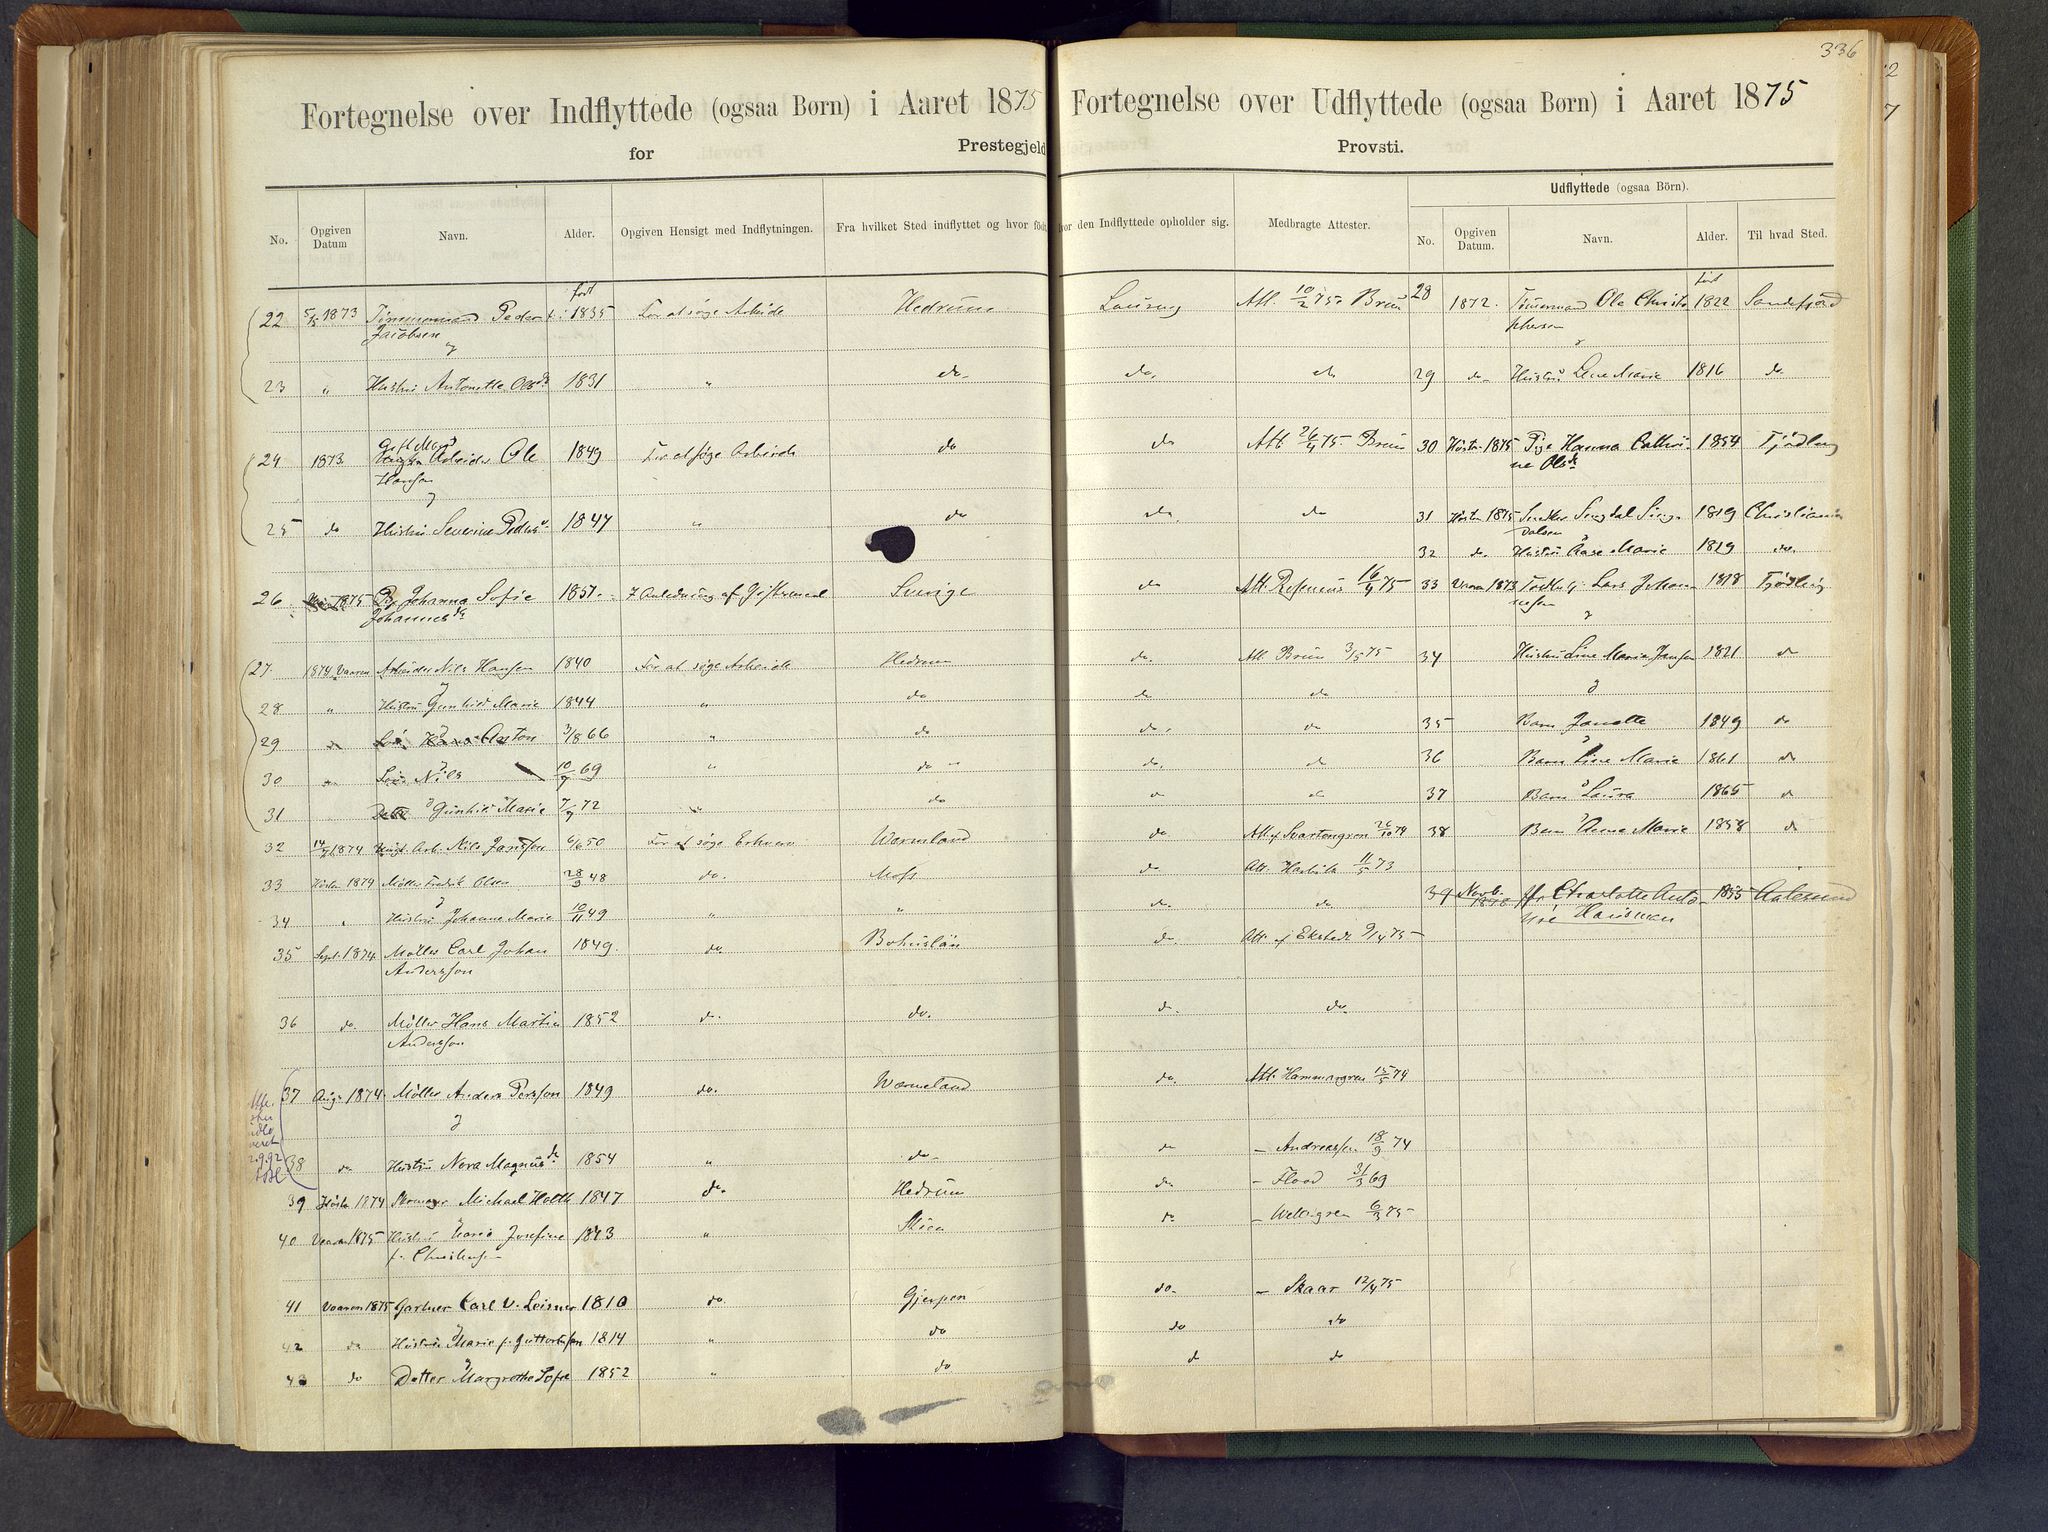 336
Fortegnelse over Indflyttede (ogsaa Børn) i Aaret 1875
for Prestegjeld
No. Opgiven Datum Navn. Alder. Opgiven Hensigt med Indflytningen. Fra hvilket Sted indflyttet og hvor födt
22 5/5 1873 Tömmermand Peder født 1835 For at søge Arbeide Hedrum
Jacobsen
23 " Hustru Antonette Olsd. 1831 " do
24 1873. Arbeider Ole 1849 For at søge Arbeide do
Hansen
25 do Hustru Severine Peders 1847 " do
26 1875 Pg Johanna Sofie 1851. I Anledning af Giftermaal Sverige
Johannesd.
27. 1874 Vaaren Arbeider Nils Hansen 1840 For at søge Arbeide Hedrum
28 " Hustru Gunhild Marie 1844 " do
29 do Søn Hans Anton 3/8 66 " do
30 do Søn Nils 10/7 69 " do
31 Datter Gunhild Marie 7/9 72 " do
32 1874 Arb. Nils Jansson 6/6 50 For at søge Erhverv Wermland
33 Høsten 1874 Möller Fredrik Olsen 28/3 48 do. Moss
34 " Hustru Johanne Marie 10/11 49 " "
35 Sept. 1874 Möller Carl Johan 1849. do Bohuslän
Andersson
36 do. Möller Hans Martin 1852 do. do.
Andersson
37 Aug. 1874. Möller Anders Persson 1849 do. Wermeland
38 do Hustru Nora Magnusd. 1854 " do
39 Høsten 1874 Skomager Michael Holth 1847 do. Hedrum
40 Vaaren 1875 Hustru Maria Josefine 1843 " Skien
f. Christensen
41 Vaaren 1875 Gartner Carl V. Leisner 1810 do. Gjerpen
42 do Hustru Marie f. Guttormsen 1814 " do
43 do Datter Margrethe Sofie 1852 " do
2.9.92
Fortegnelse over Udflyttede (ogsaa Børn) i Aaret 1875
Provsti.
Hvor den Indflyttede opholder sig. Medbragte Attester. Udflyttede (ogsaa Börn).
No. Opgiven Datum. Navn. Alder. Til hvad Sted.
Laurvig Att. 10/2 75 Brun 28 1872. Tømmermand Ole Christo født 1822 Sandefjord
phersen
do. do 29 do Hustru Lene Marie 1816 do
do Att. 26/4 75. Brun 30 Høsten 1875 Pige Hanna Cathri 1854 Tjødling
ne Olsd.
do. do 31 Høsten 1875 Snedker Singdal Sing 1819 Christiania
dalsen
32 do. Hustru Aase Marie 1829 do.
do Att. Rosenius 16/4 75 33 Vaaren 1873 Lars Johan 1818 Tjødling
nesen
do. Att Brun 3/5 75 34 Hustru Line Marie Jansen 1821 do
do do
do. do 35 Barn Janette 1849 do
do. do 36 Barn Line Marie 1861 do
do 37 Barn Laura 1865 do
do Att. af Svartengren 26/10 74 38 Barn Anna Marie 1858 do
do Att. 11/5 73
do. do 39 Novb. 1878 Charlotte Anto 1855 Aalesund
nie Hansman
do. Att. af Ekstedt 9/4 75
do. do.
do. Att. Hammargren 15/5 74
do - Andreassen 18/9 74
do - Flood 31/3 69
do - Wettergren 6/3 75
do. - Skaar 12/4 75
do do
do do